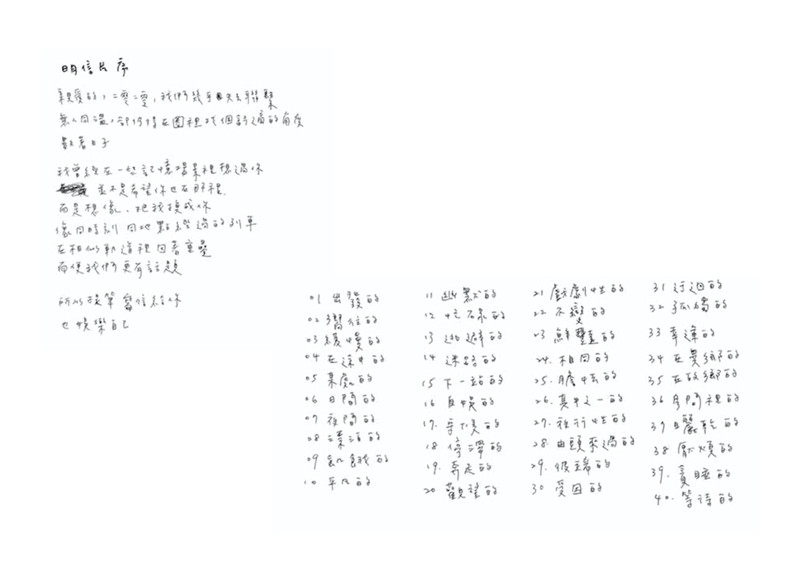 明信片序
親愛的,二零二零,我們幾乎失去聯繫
無人同溫,都倒臥在圈裡找個舒適的角度
數著日子
我曾經在一些記憶場景裡想過你
並不是希望你也在那裡
而是想像,把我換成你
像同時刻同地點經過的列車
在相似軌道裡因著重疊
而使我們更有話題
所以提筆寫信給你
也娛樂自己
01 出發的
02 嚮往的
03 緩慢的
04 在途中的
05 某處的
06 日間的
07 夜間的
08 漂泊的
09 飢餓的
10 平凡的
11 幽默的
12 吃石的
13 逃避的
14 迷路的
15 下一站的
16 自娛的
17. 手煩的
18. 停滯的
19. 奔走的
20 觀望的
21 戲劇性的
22 不變的
23 鮮豔的
24. 相同的
25. 膽怯的
26. 其中之一的
27. 夜行性的
28. 由頭來過的
29. 假端的
30 受困的
31 迂迴的
32 孤獨的
33 幸運的
34 在異鄉的
35 在故鄉的
36 房間裡的
37 曬乾的
38 厭煩的
39. 賣睡的
40. 等待的